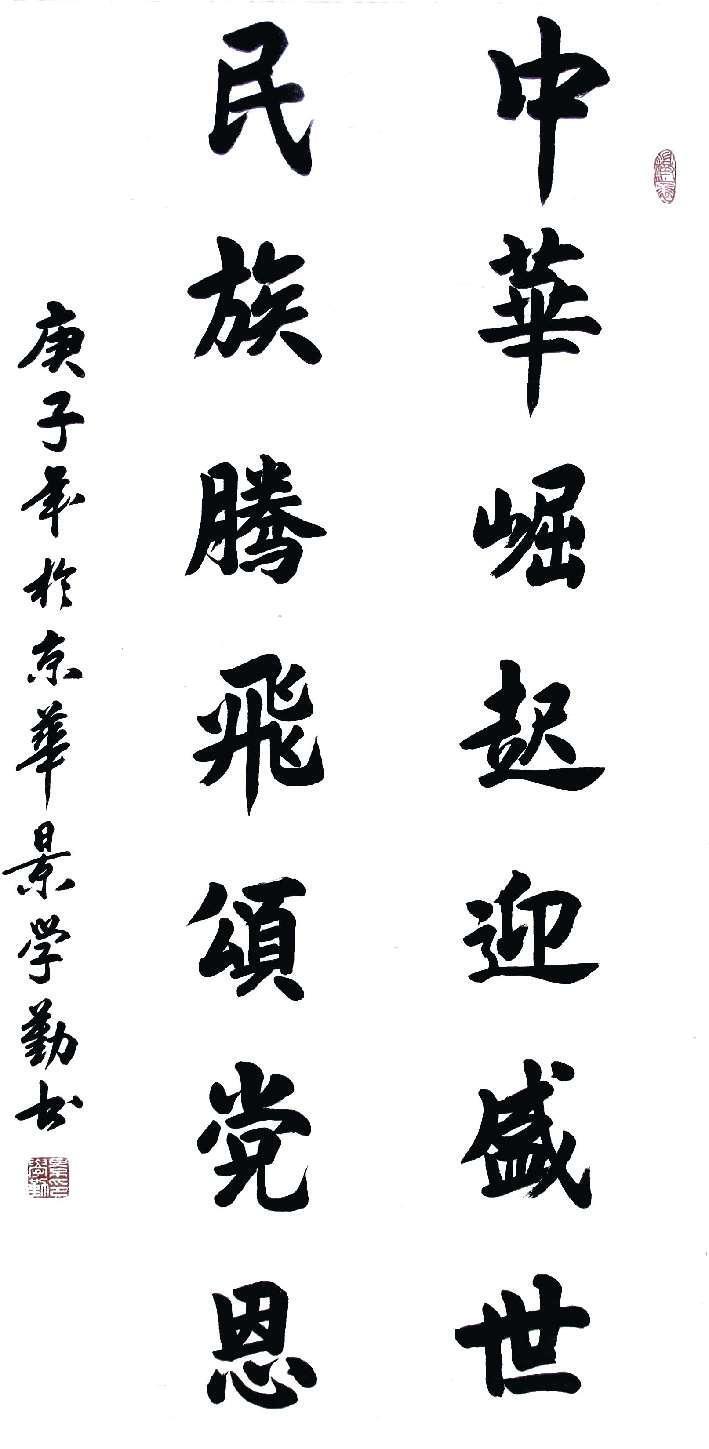 中華崛起迎盛世
民族腾飛頌党恩
庚子年於京華景学勤书